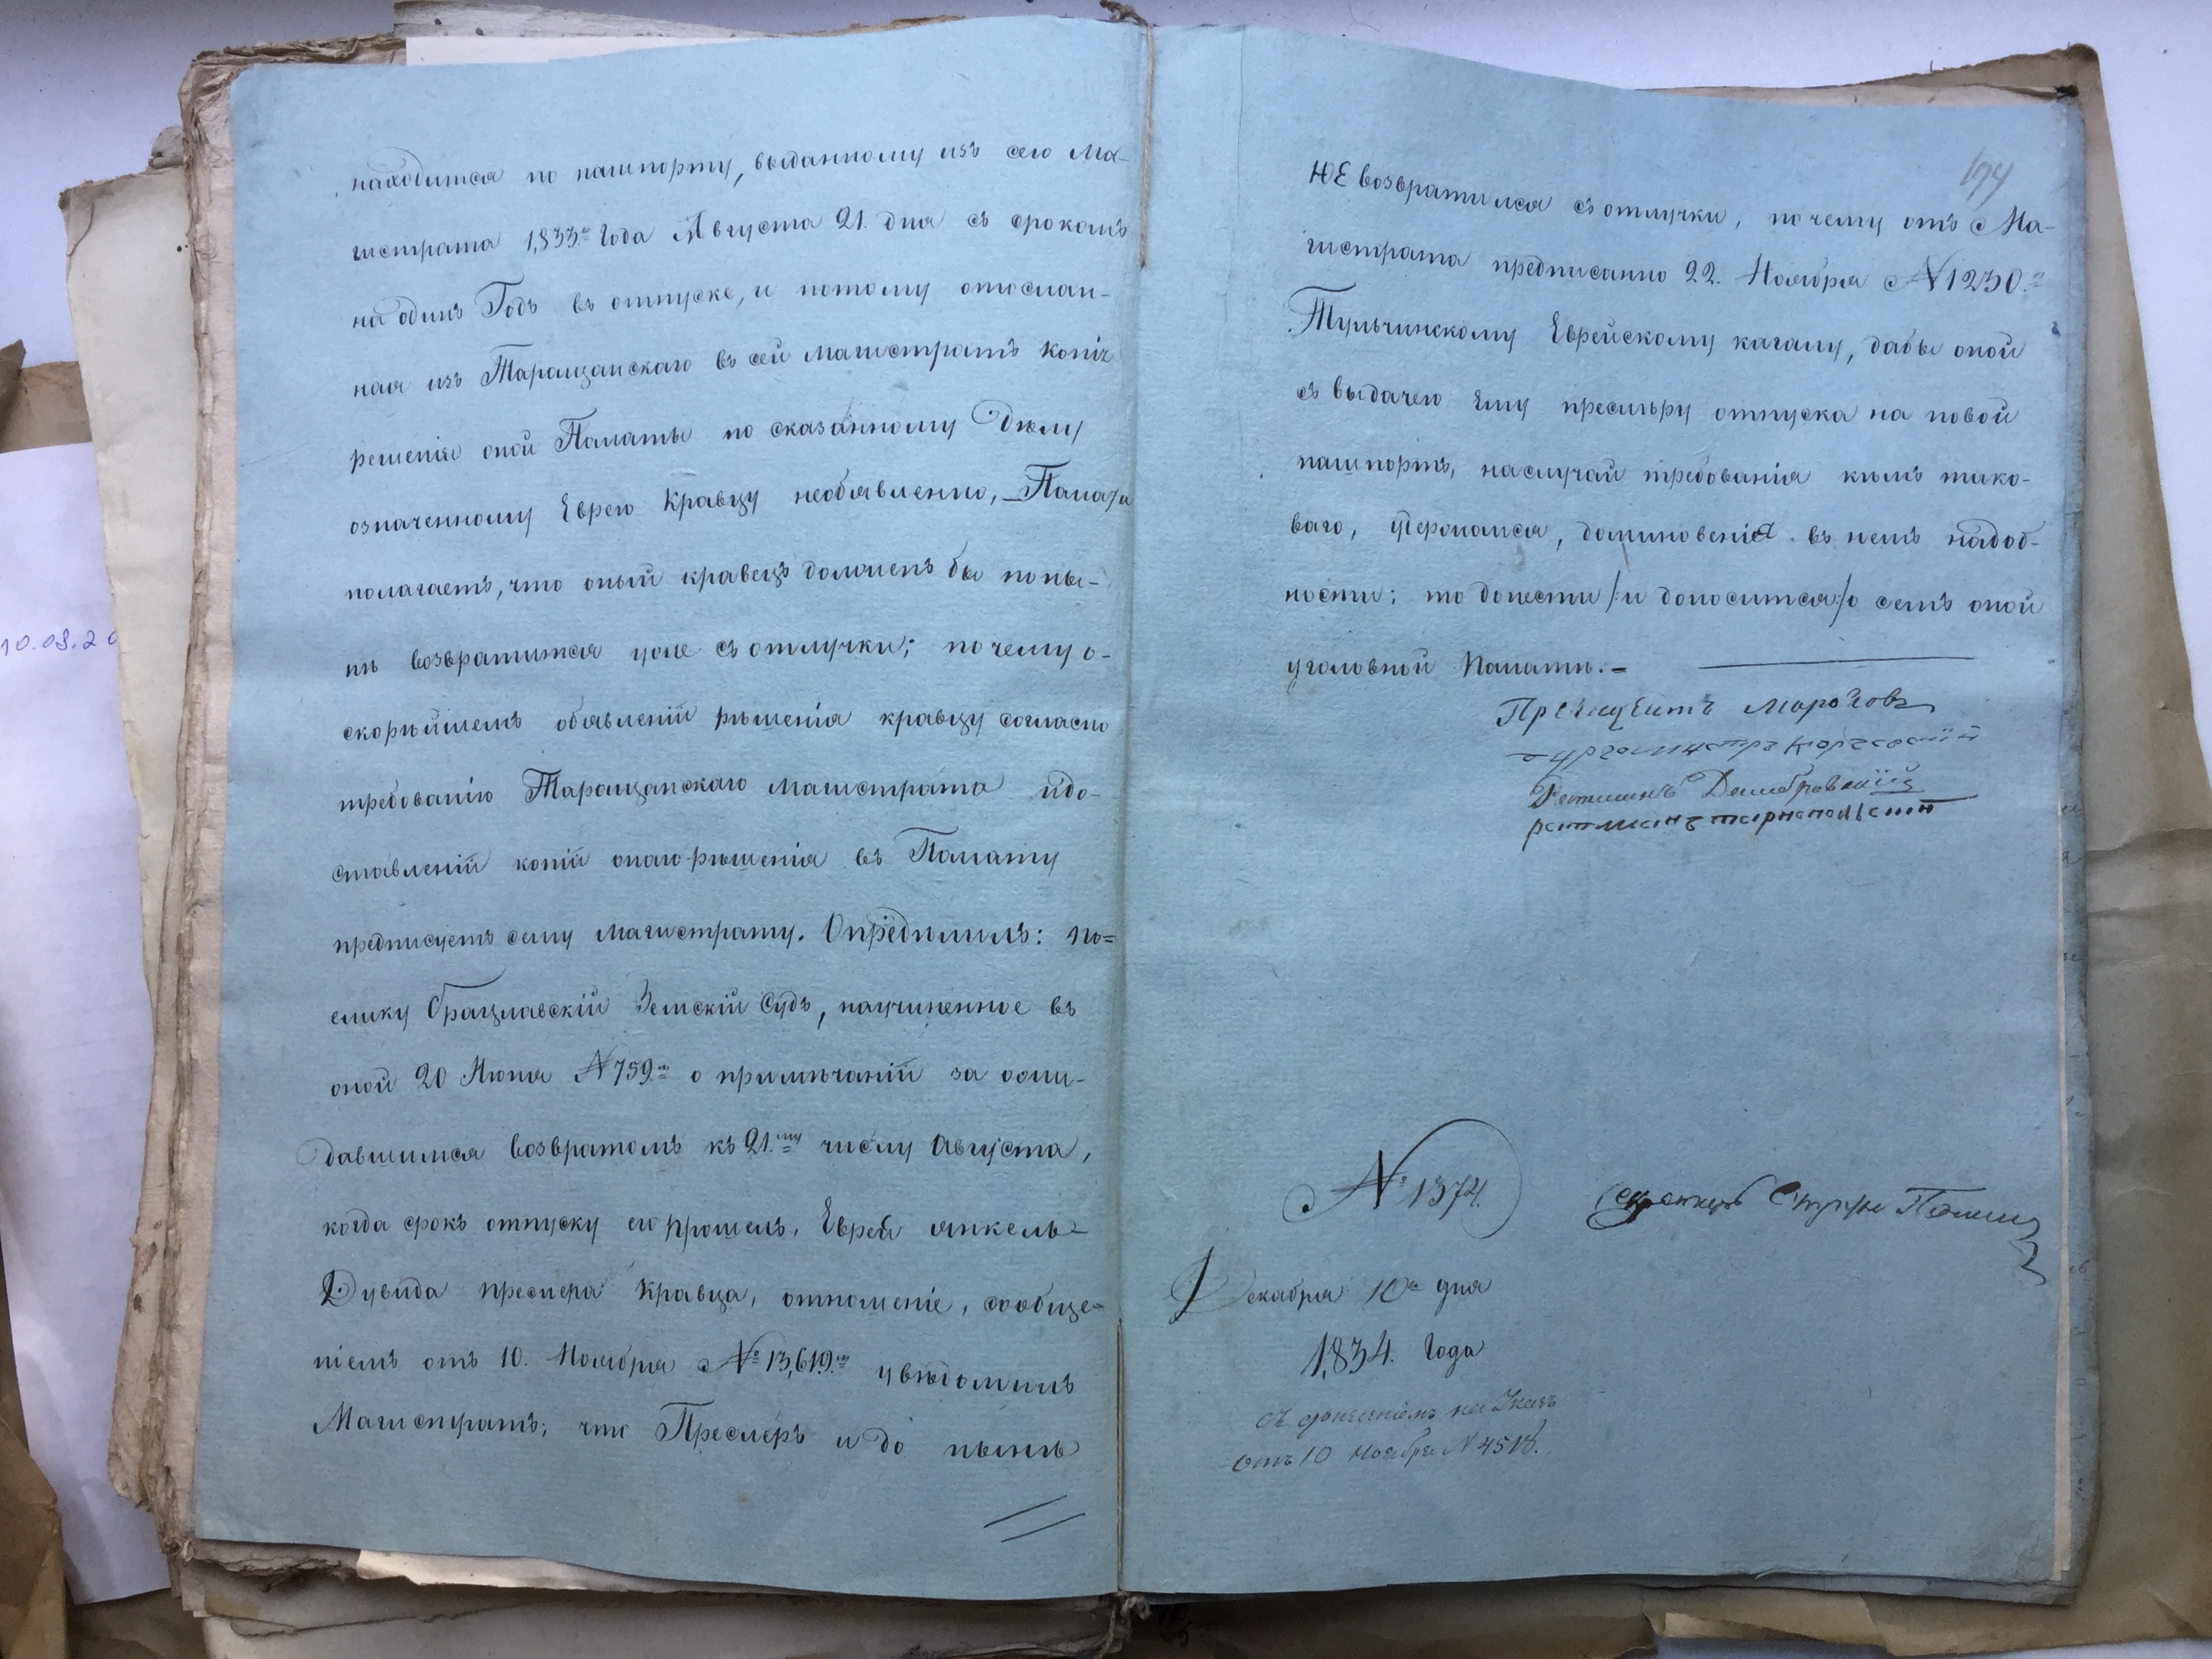 находится по пашпорту, выданному изъ сего Ма-
гистрата 1,833.го Года Августа 21. дня съ срокомъ
на одинъ Годъ въ отпуске, и потому отослан-
ная изъ Таращанскаго въ сей Магистратъ копія
решенія оной Палаты по сказанному Дѣлу
означенному Еврею Кравцу необъявленно, – Палата
полагаетъ, что оный кравецъ долженъ бы поны-
нѣ возвратится уже съ отлучки; почему о-
скорѣйшемъ объявленій рѣшенія кравцу согласно
требованію Таращанскаго магистрата идо-
ставленій копій онаго рѣшенія въ Палату
предписуетъ сему Магистрату. Определилъ: по=
елику Брацлавскій Земскій Судъ, научиненное въ
оной 20 Июня №759.м о примѣчаній за ожи-
давшимся возвратомъ къ 21.му числу Августа,
когда срокъ отпуску его прошелъ, Еврея Янкель-
Дувида преслера Кравца, отношеніе, сообще-
ніемъ отъ 10. Ноября №13,619.м увѣдомилъ
Магистратъ; что Преслеръ и до нынѣ
194
НЕ возвратился съ отлучки, почему отъ Ма-
гистрата предписанно 22. Ноября №1230.м
Тульчинскому Еврейскому кагалу, дабы оной
съ выдачею Ему преслѣру отпуска на новой
пашпортъ, наслучай требованія кѣмъ тако-
ваго, удержался, доминовенія въ немъ надоб-
ности; то донести /: и доносится :/ о семъ оной
уголовной Палатѣ. –
Президентъ Марозовъ
Бургомистръ
Ратманъ Домбровскій
ратманъ тарнопольскій
№1374.
Секретарь
Декабря 10го дня
1,834. Года
Съ донесеніемъ на Указъ
отъ 10 Ноября №4518.
10.09.20